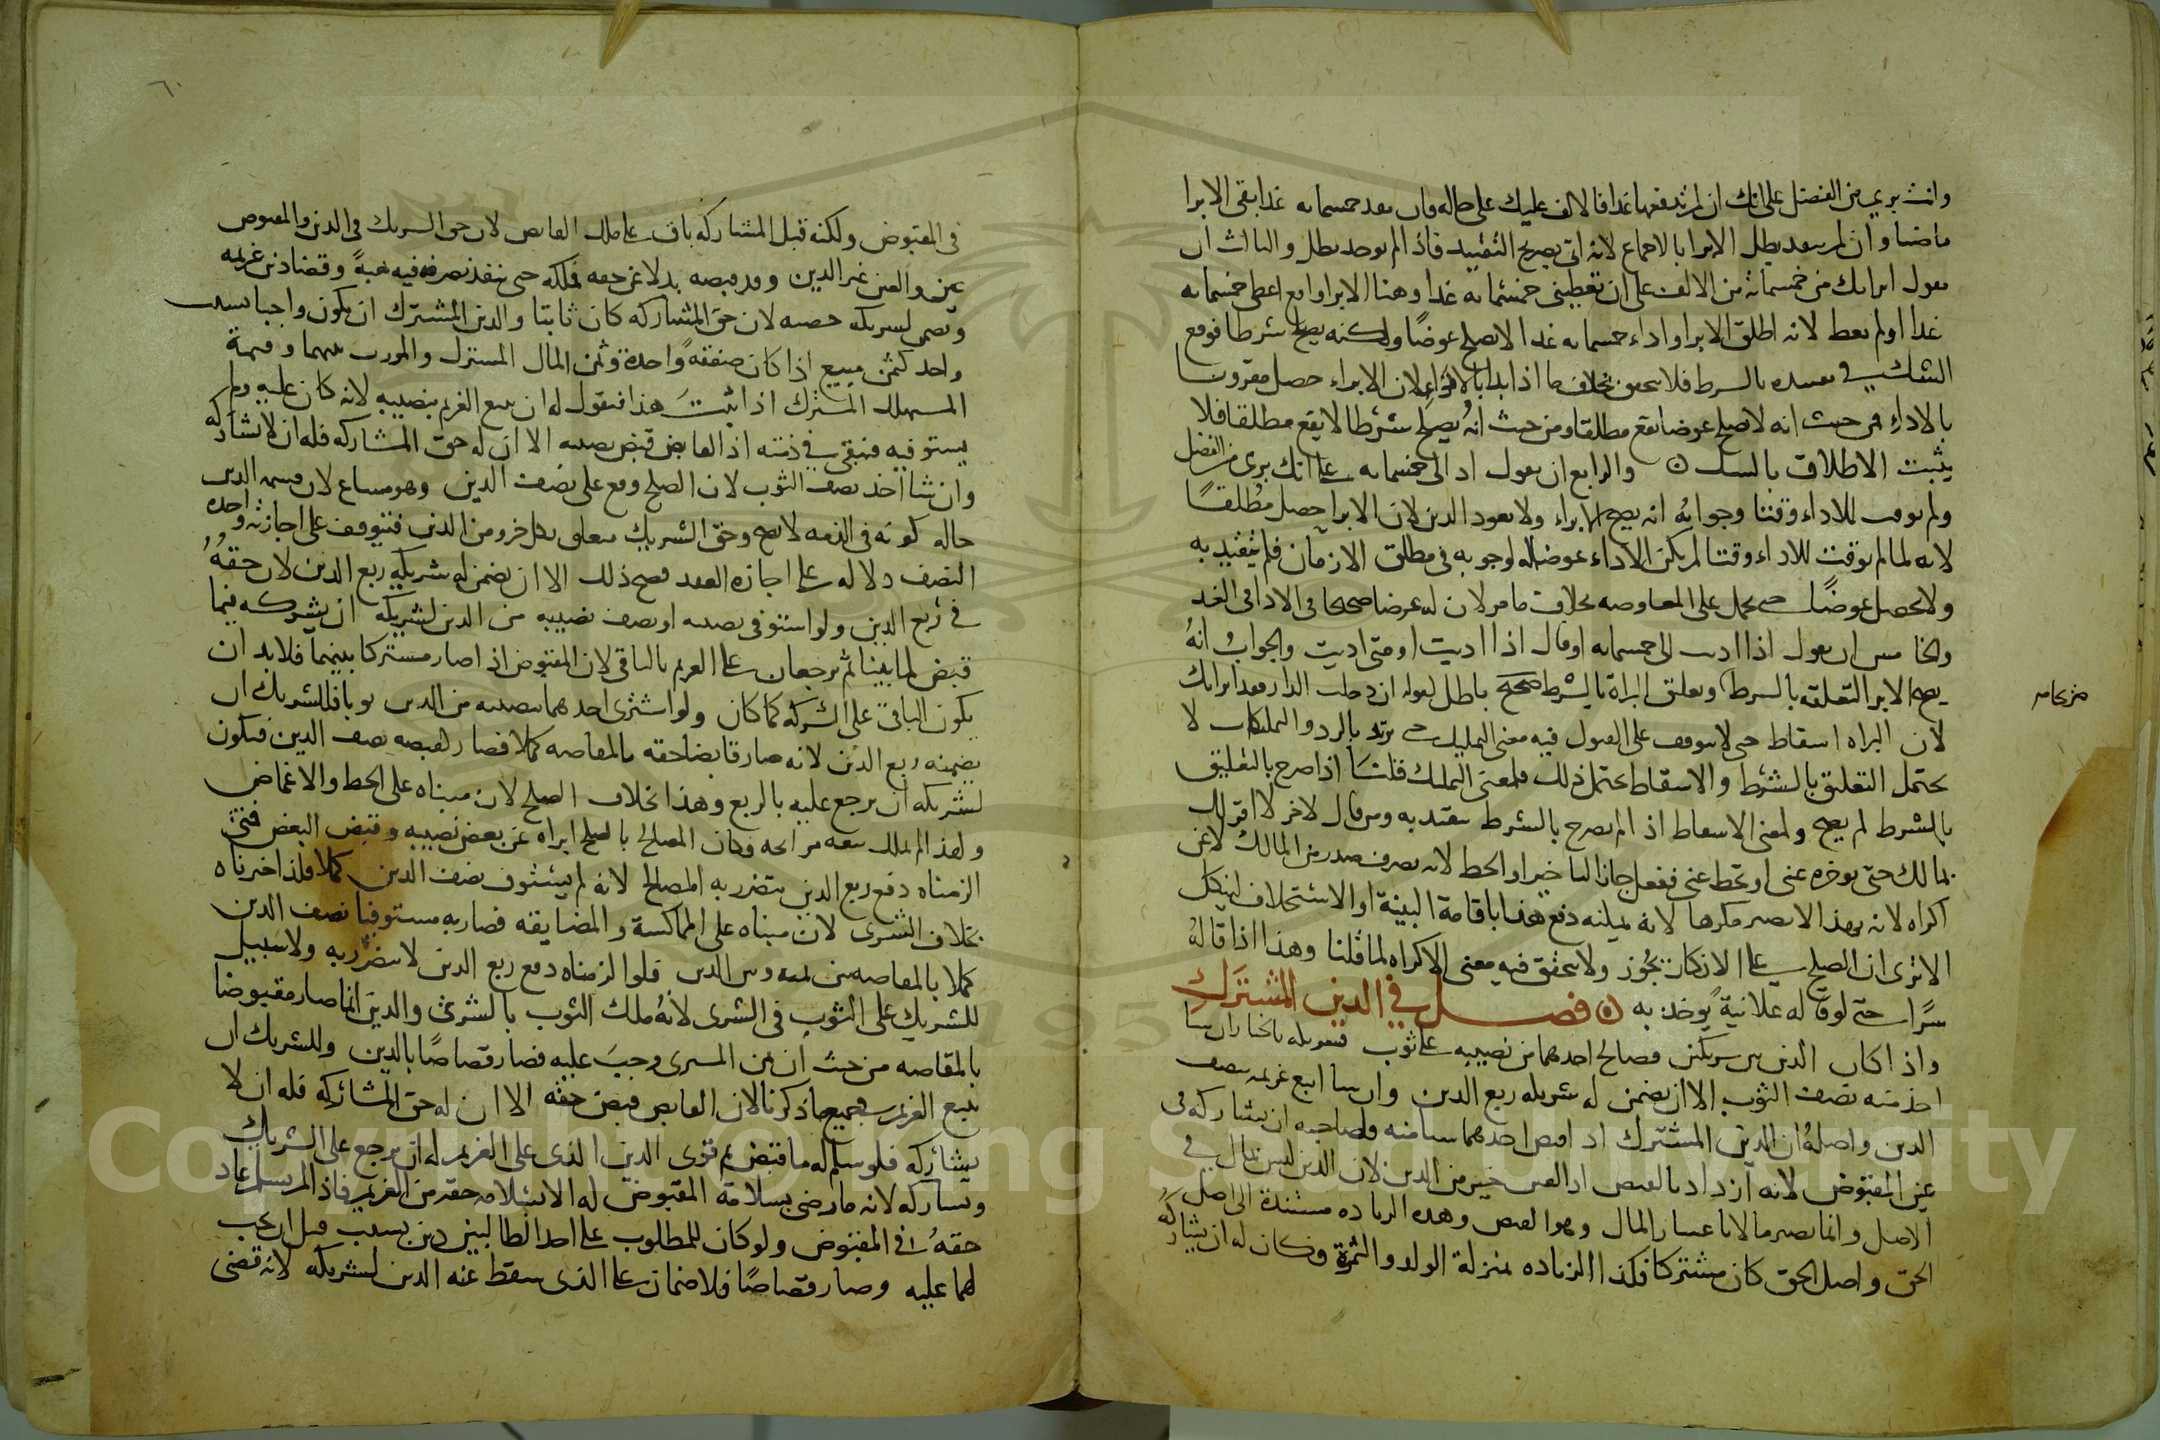 وانت بري من الفضل على انك ان لم تدفعها غدا فالالف عليك على حاله فان نقد خمسمايه غدا بقي الابرا
ماضيا وان لم ينقد بطل الابرا بالاجماع لانه اتى بصريح التقييد فاذا لم يوجد بطل والثالث ان
يقول ابراتك من خمسماية من الالف على ان تعطيني خمسمايه غدا وهنا الابرا واقع اعطى خمسمايه
غدا او لم يعط لانه اطلق الابرا واداء خمسمايه غدا لا يصلح عوضا ولكنه يصلح شرطا فوقع
الشك في تقييده بالشرط فلا يتحقق بخلاف ما اذا بدا بالاداء لان الابراء حصل مقرونا
بالاداء فمن حيث انه لا يصلح عوضا يقع مطلقا ومن حيث انه يصلح شرطا لا يقع مطلقا فلا
يثبت الاطلاق بالشك والرابع ان يقول اد الي خمسمايه على انك بري من الفضل
ولم يوقت للاداء وقتا وجوابه انه يصح الابراء ولا يعود الدين لان الابرا حصل مطلقا
لانه لما لم يوقت للاداء وقتا لم يكن الاداء عوضا له لوجوبه في مطلق الازمان فلم يتقيد به
ولا يحصل عوضا حتى يحمل على المعاوضه بخلاف ما مر لان له غرضا صحيحا في الاداء في الغد
والخامس ان يقول اذا اديت الي خمسمايه او قال اذا اديت او متى اديت والجواب انه
يصح الابرا المتعلقه بالشرط وتعليق البراة بالشرط صحيح باطل لقوله ان دخلت الدار فقد ابراتك
لان البراه اسقاط حتى لا يتوقف على القبول فيه معنى التمليك حتى يرتد بالرد والتمليكات لا
تحتمل التعليق بالشرط والاسقاط يحتمل ذلك فلمعنى التمليك قلنا اذا صرح بالتعليق
بالشرط لم يصح ولمعنى الاسقاط اذا لم يصرح بالشرط يتقيد به ومن قال لاخر لا اقر لك
بمالك حتى توخره عني او تحط عني ففعل جاز التاخير او الحط لانه تصرف صدر من المالك لا عن
اكراه لانه بهذا لا يصير مكرها لانه يمكنه دفع هذا باقامة البينة او الاستحلاف لينكل
الا ترى ان الصلح على الانكار يجوز ولا يتحقق فيه معنى الاكراه لما قلنا وهذا اذا قاله
سرا حتى لو قاله علانية يوخذ به فصل في الدين المشترك
واذا كان الدين بين شريكين فصالح احدهما من نصيبه على ثوب فشريكه بالخيار ان شا
اخذ منه نصف الثوب الا ان يضمن له شريكه ربع الدين وان شا اتبع غريمه بنصف
الدين واصله ان الدين المشترك اذا قبض احدهما شيا منه فلصاحبه ان يشاركه في
عين المقبوض لانه ازداد بالقبض اذ العين خير من الدين لان الدين ليس بمال في
الاصل وانما يصير مالا باعتبار المال وهو القبض وهذه الزياده مستندة الى اصل
الحق واصل الحق كان مشتركا فكذا الزياده بمنزلة الولد والثمرة فكان له ان يشاركه
من خامس
٦٠
في المقبوض ولكنه قبل المشاركه باق على ملك القابض لان حق الشريك في الدين والمقبوض
عين والعين غير الدين وقد قبضه بدلا عن حقه فملكه حتى ينفذ تصرفه فيه هبة وقضا دين غريمه
ويضمن لشريكه حصته لان حق المشاركه كان ثابتا والدين المشترك ان يكون واجبا بسبب
واحد كثمن مبيع اذا كان صفقة واحدة وثمن المال المشترك والموروث بينهما وقيمة
المستهلك المشترك اذا ثبت هذا فنقول له ان يتبع الغريم بنصيبه لانه كان عليه ولم
يستوفيه فتبقى في ذمته اذ القابض قبض نصيبه الا ان له حق المشاركه فله ان لا يشاركه
وان شا اخذ نصف الثوب لان الصلح وقع على نصف الدين وهو مشاع لان قسمة الدين
حاله كونه في الذمه لا تصح وحق الشريك متعلق بكل جزو من الدين فتتوقف على اجازته واخذه
النصف دلاله على اجازه العقد فصح ذلك الا ان يضمن له شريكه ربع الدين لان حقه
في ربع الدين ولو استوفى نصيبه او نصف نصيبه من الدين لشريكه ان يشركه فيما
قبض لما بينا ثم يرجعان على الغريم بالباقي لان المقبوض اذا صار مشتركا بينهما فلا بد ان
يكون الباقي على الشركه كما كان ولو اشترى احدهما بنصيبه من الدين ثوبا فللشريك ان
يضمنه ربع الدين لانه صار قابضا حقه بالمقاصه كملا فصار لقبضه نصف الدين فيكون
لشريكه ان يرجع عليه بالربع وهذا بخلاف الصلح لان مبناه على الحط والاغماض
ولهذا لم يملك بيعه مرابحه فكان المصالح بالصلح ابراه عن بعض نصيبه وقبض البعض فمتى
الزمناه دفع ربع الدين يتضرر به المصالح لانه لم يستوف نصف الدين كملا فلذا خيرناه
بخلاف الشرى لان مبناه على المماكسة والمضايقه فصار به مستوفيا نصف الدين
كملا بالمقاصه بين ثمنه وبين الدين فلو الزمناه دفع ربع الدين لا يتضرر به ولا سبيل
للشريك على الثوب في الشرى لانه ملك الثوب بالشرى والدين انما صار مقبوضا
بالمقاصه من حيث ان ثمن المشرى وجب عليه فصار قصاصا بالدين وللشريك ان
يتبع الغريم في جميع ما ذكرنا لان القابض قبض حقه الا ان له حق المشاركه فله ان لا
يشاركه فلو سلم له ما قبض ثم توى الدين الذى على الغريم له ان يرجع على الشريك
ويشاركه لانه ما رضي بسلامة المقبوض له الا لسلامه حقه من الغريم فاذا لم يسلم عاد
حقه في المقبوض ولو كان للمطلوب على احد الطالبين دين بسبب قبل ان يجب
لهما عليه وصار قصاصا فلا ضمان على الذى سقط عنه الدين لشريكه لانه قضى